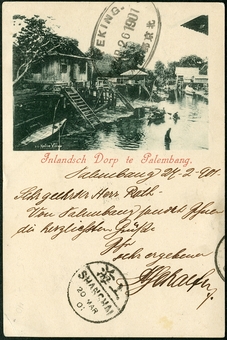 PEKING
26 1901
北京
Inlandsch Dorp te Palembang.
Palembang 27-2-901.
Sehr geehrter Herr Rath –
Von Palembang sendet Ihnen
die herzlichsten Grüße
Ihr
sehr ergebener
SHANGHAI
20 MAR
01